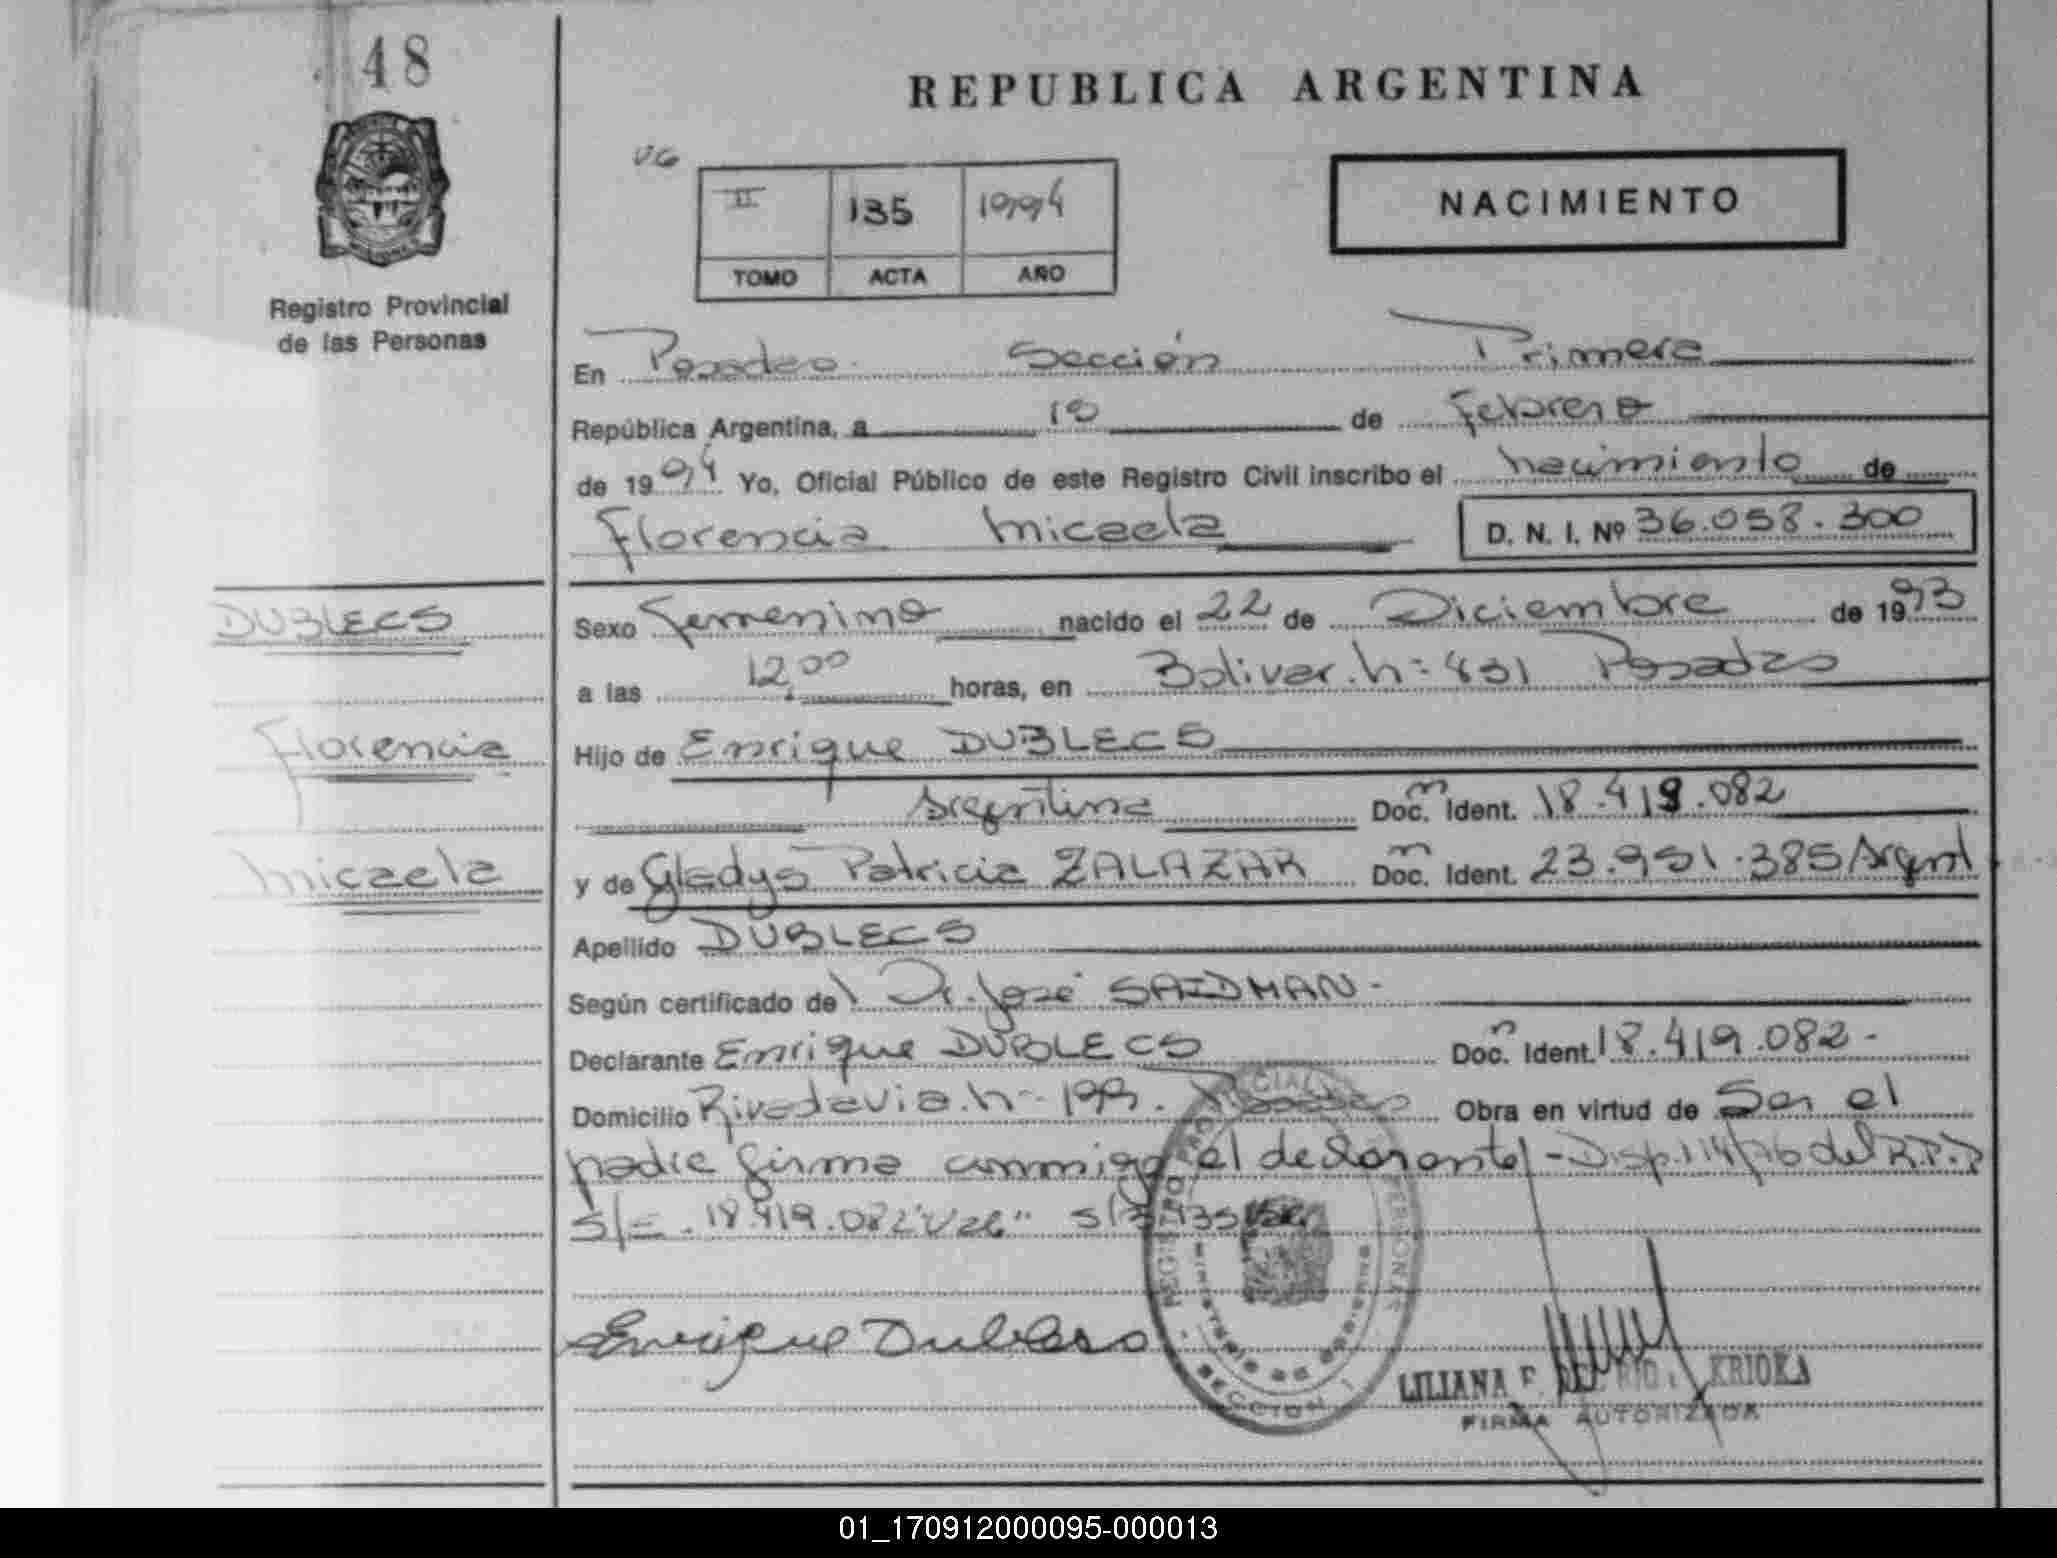 48
REPUBLICA ARGENTINA
NACIMIENTO
II 135 1994
TOMO ACTA AÑO
Registro Provincial
de las Personas
En Posadas Sección Primera
República Argentina, a 10 de Febrero
de 1994 Yo, Oficial Público de este Registro Civil inscribo el nacimiento de
Florencia Micaela D. N. I. Nº 36.058.300
DUBLECS
Florencia
Micaela
Sexo Femenino nacido el 22 de Diciembre de 1993
a las 12,00 horas, en Bolivar. n: 431 Posadas
Hijo de Enrique DUBLECS
Argentina Doc. Ident. 18.419.082
y de Gladys Patricia ZALAZAR Doc. Ident. 23.951.385 Argent
Apellido DUBLECS
Según certificado de Dr. José SAIDMAN -
Declarante Enrique DUBLECS Doc. Ident. 18.419.082 -
Domicilio Rivadavia. n- 199. Posadas Obra en virtud de Ser el
padre firma conmigo el declarante - Disp. 114/76 del R.P.P
S/= . 18.419.082 "Vale"
Enrique Dublecs
REGISTRO PROVINCIAL PERSONAS
MINISTERIO DE GOBIERNO
SECCION 1
LILIANA F. DEL RIO KRIOKA
FIRMA AUTORIZADA
01_170912000095-000013